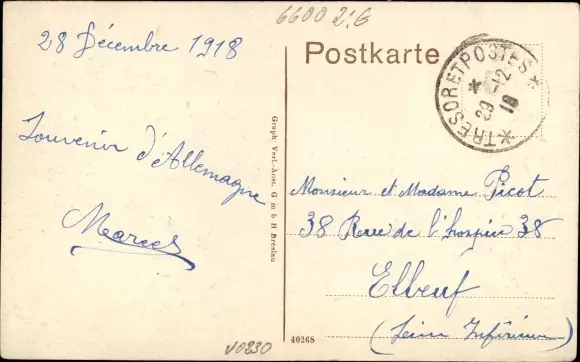 6600 2.G
28 Décembre 1918
Postkarte
TRESOR ET POSTES
29 -12
18
Souvenir d'Allemagne
Marcel
Graph. Verl.-Anst. G m b H Breslau
Monsieur et Madame Picot
38 Rue de l'hospice 38
Elbeuf
(Seine Inférieure
40268
V0230